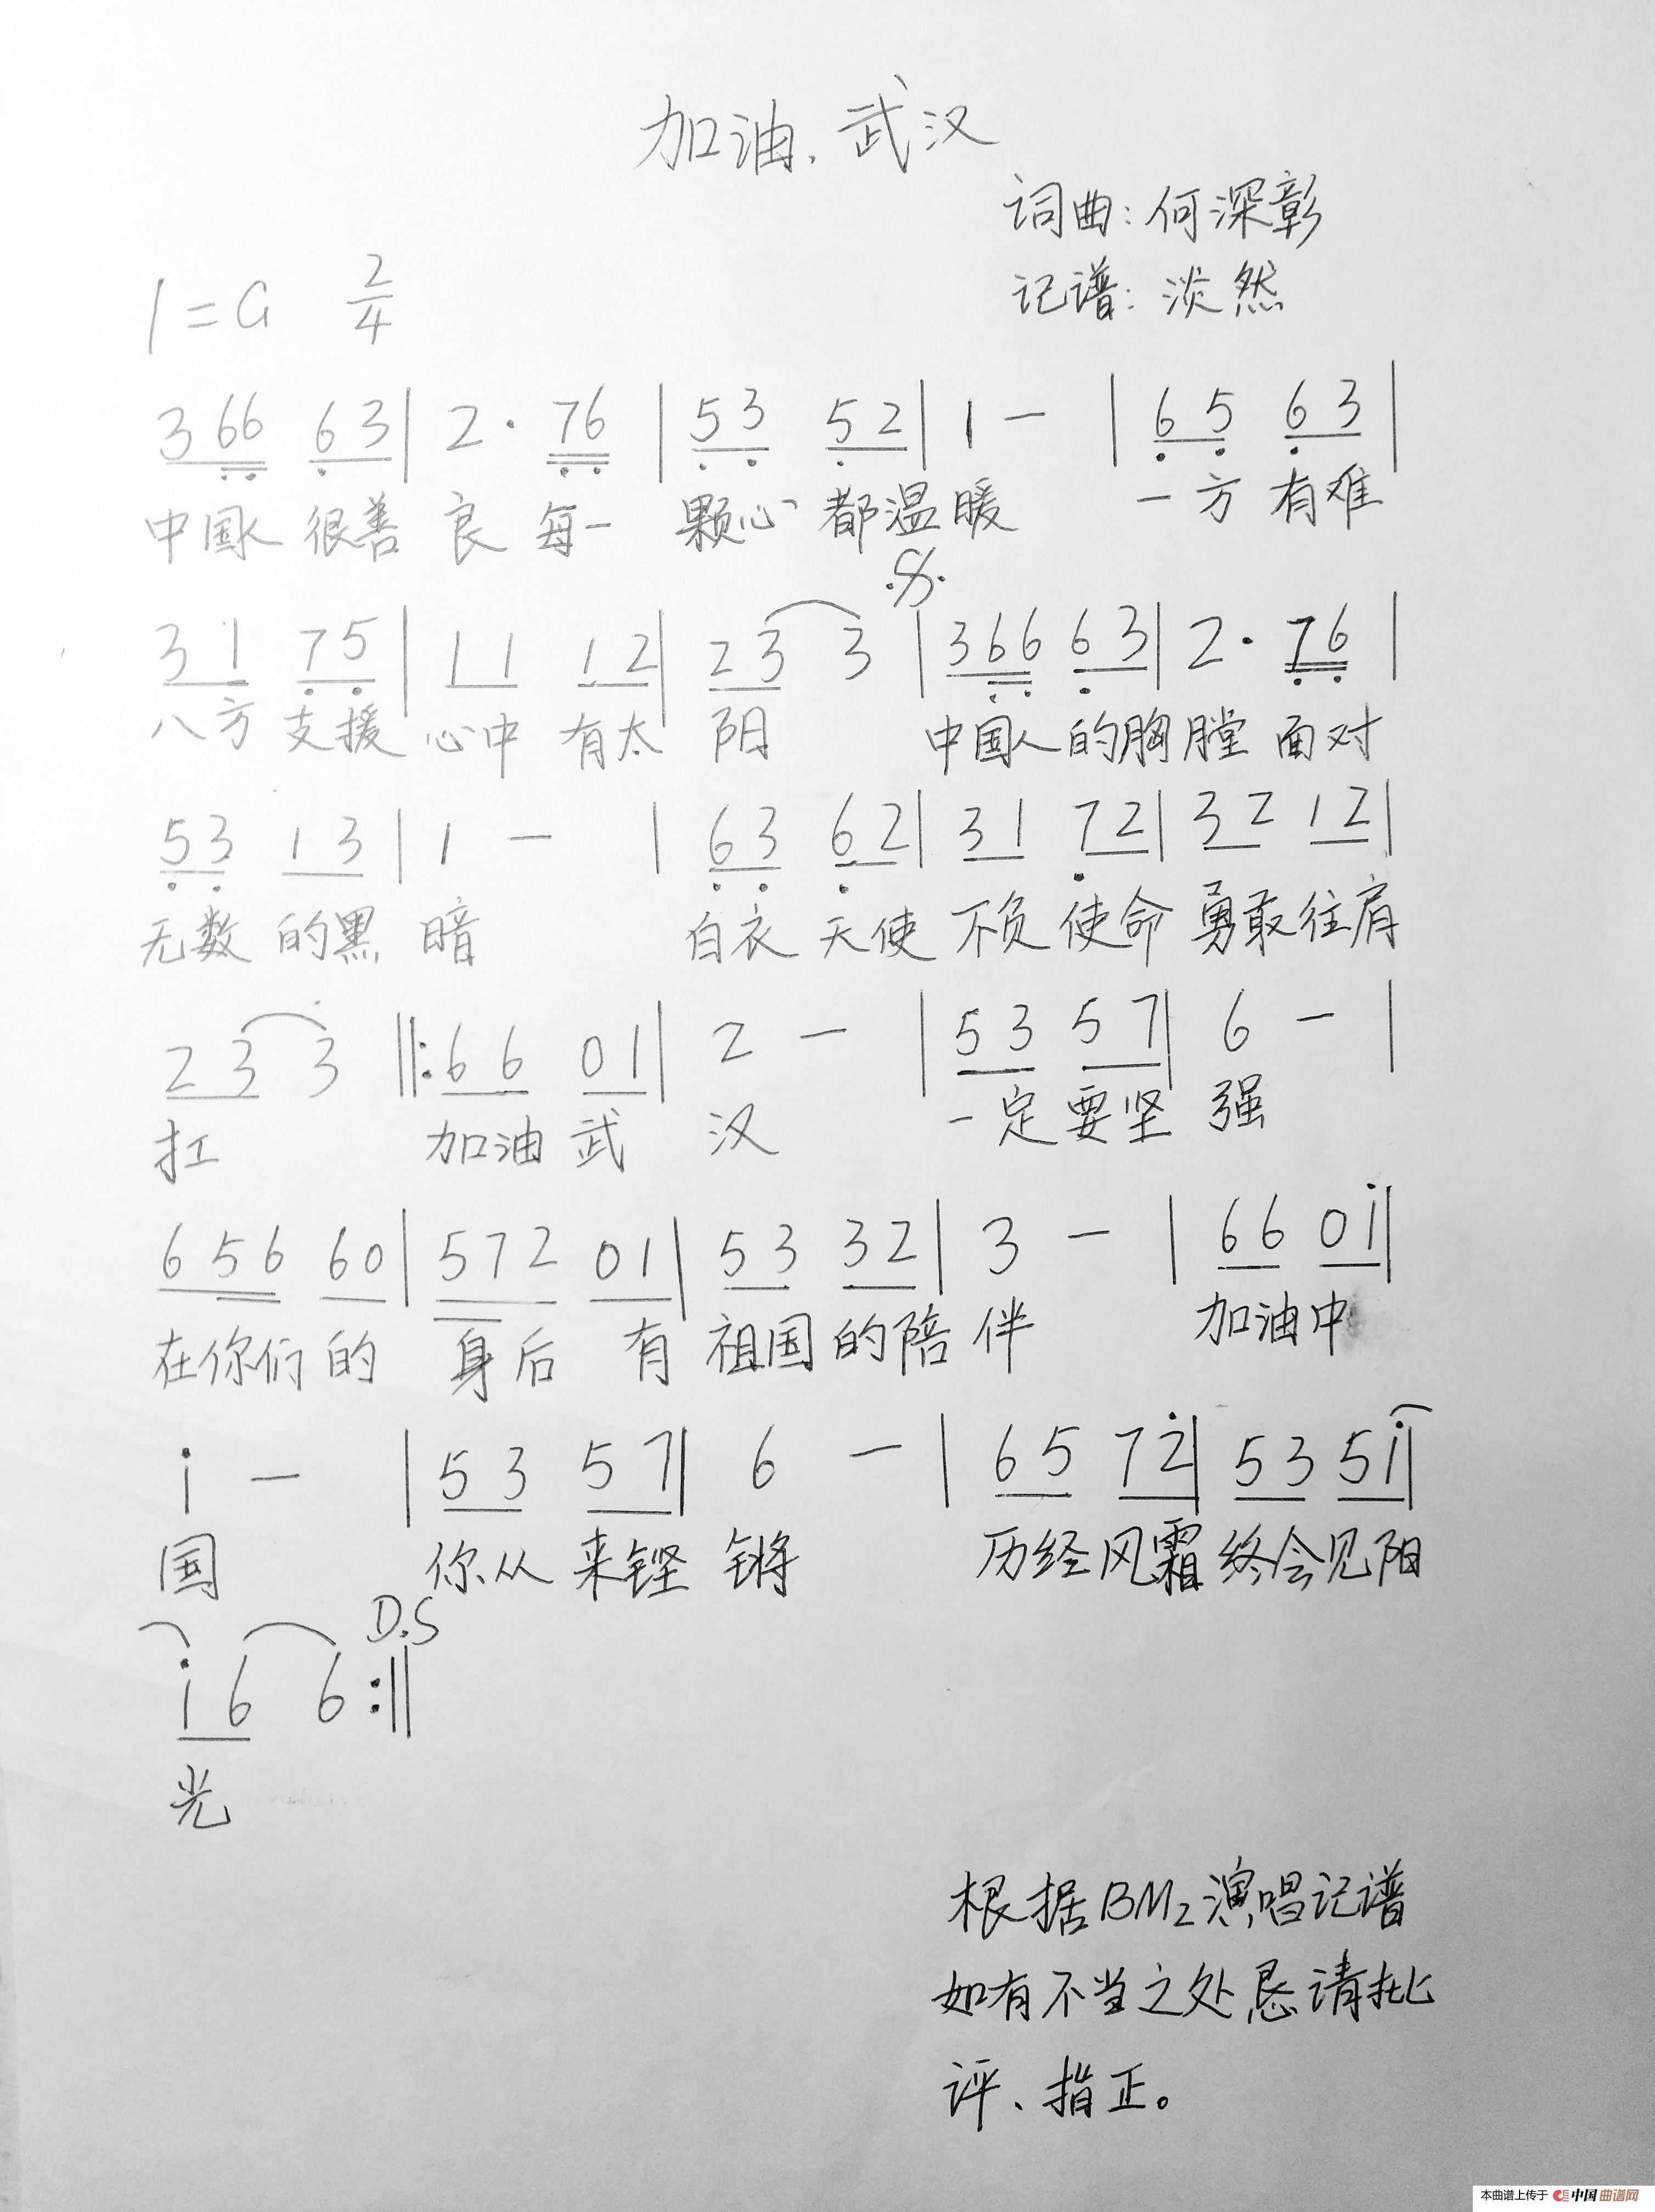 加油、武汉
词曲：何深彰
记谱：淡然
1=G 2/4
3 6 6 6 3 | 2 · 7 6 | 5 3 5 2 | 1 - | 6 5 6 3 |
中国人 很善 良 每一 颗心 都温暖 一方 有难
𝄋
3 1 7 5 | 1 1 1 2 | 2 3 3 | 3 6 6 6 3 | 2 · 7 6 |
八方 支援 心中 有太 阳 中国人的胸膛 面对
5 3 1 3 | 1 - | 6 3 6 2 | 3 1 7 2 | 3 2 1 2 |
无数 的黑 暗 白衣 天使 不负 使命 勇敢往肩
2 3 3 ‖: 6 6 0 1 | 2 - | 5 3 5 7 | 6 - |
扛 加油 武 汉 一定要坚 强
6 5 6 6 0 | 5 7 2 0 1 | 5 3 3 2 | 3 - | 6 6 0 i |
在你们 的 身后 有 祖国 的陪 伴 加油中
i - | 5 3 5 7 | 6 - | 6 5 7 2 | 5 3 5 i |
国 你从 来铿 锵 历经风霜 终会见阳
D.S
i 6 6 :‖
光
根据BM2演唱记谱
如有不当之处恳请批
评、指正。
本曲谱上传于 中国曲谱网